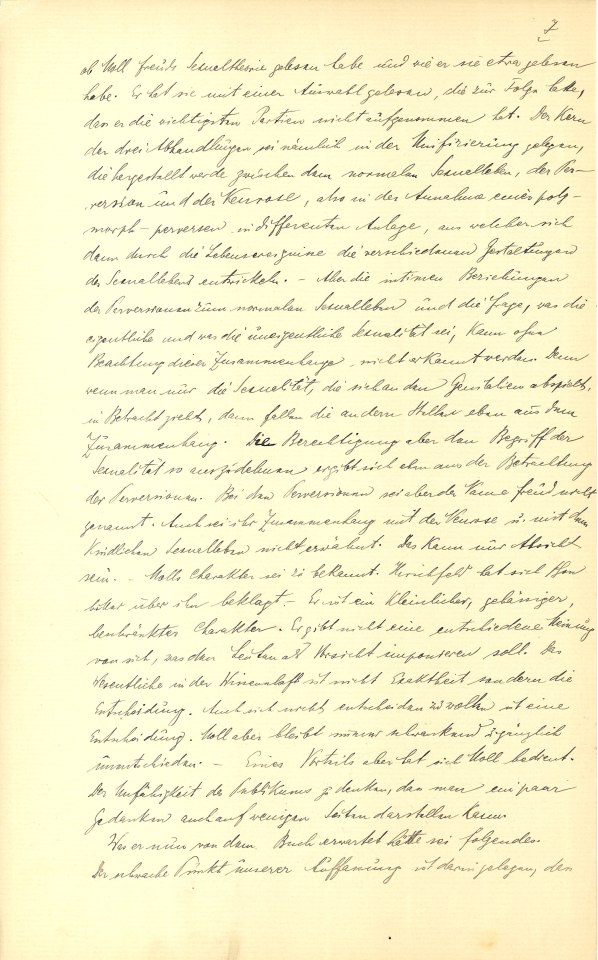 7
ob Moll Freuds Sexualtheorie gelesen habe und wie er sie etwa gelesen
habe. Er hat sie mit einer Auswahl gelesen, die zur Folge hatte,
dass er die wichtigsten Partien nicht aufgenommen hat. Der Kern
der drei Abhandlungen sei nämlich in der Unifizierung gelegen,
die hergestellt werde zwischen dem normalen Sexualleben, der Per-
version und der Neurose, also in der Annahme eines poly-
morph-perversen indifferenten Anlage, aus welcher sich
dann durch die Lebensereignisse die verschiedenen Gestaltungen
des Sexuallebens entwickeln. - Aber die intimen Beziehungen
der Perversionen zum normalen Sexualleben und die Frage, was die
eigentliche und was die uneigentliche Sexualität sei, kann ohne
Beachtung dieser Zusammenhänge nicht erkannt werden. Denn
wenn man nur die Sexualität, die sich an den Genitalien abspielt,
in Betracht zieht, dann fallen die andern Stellen eben aus dem
Zusammenhang. Die Berechtigung aber den Begriff der
Sexualität so auszudehnen ergibt sich eben aus der Betrachtung
der Perversionen. Bei den Perversionen sei aber der Name Freud nicht
genannt. Auch sei ihr Zusammenhang mit der Neurose u. mit dem
kindlichen Sexualleben nicht erwähnt. Das kann nur Absicht
sein. - Molls Charakter sei zu bekannt. Hirschfeld hat sich schon
bitter über ihn beklagt. - Er ist ein kleinlicher, gehässiger,
beschränkter Charakter. Er gibt nicht eine entschiedene Meinung
von sich, was den Leuten als Vorsicht imponieren soll. Das
Wesentliche in der Wissenschaft ist nicht Exaktheit sondern die
Entscheidung. Auch sich nicht entscheiden zu wollen ist eine
Entscheidung. Moll aber bleibt immer schwankend
unentschieden. - Eines Vorteils aber hat sich Moll bedient.
Der Unfähigkeit des Publikums zu denken, dem man ein paar
Gedanken auch auf wenigen Seiten darstellen kann.
Was er nun von dem Buch erwartet hätte sei folgendes.
Der schwache Punkt unserer Auffassung ist darin gelegen, dass